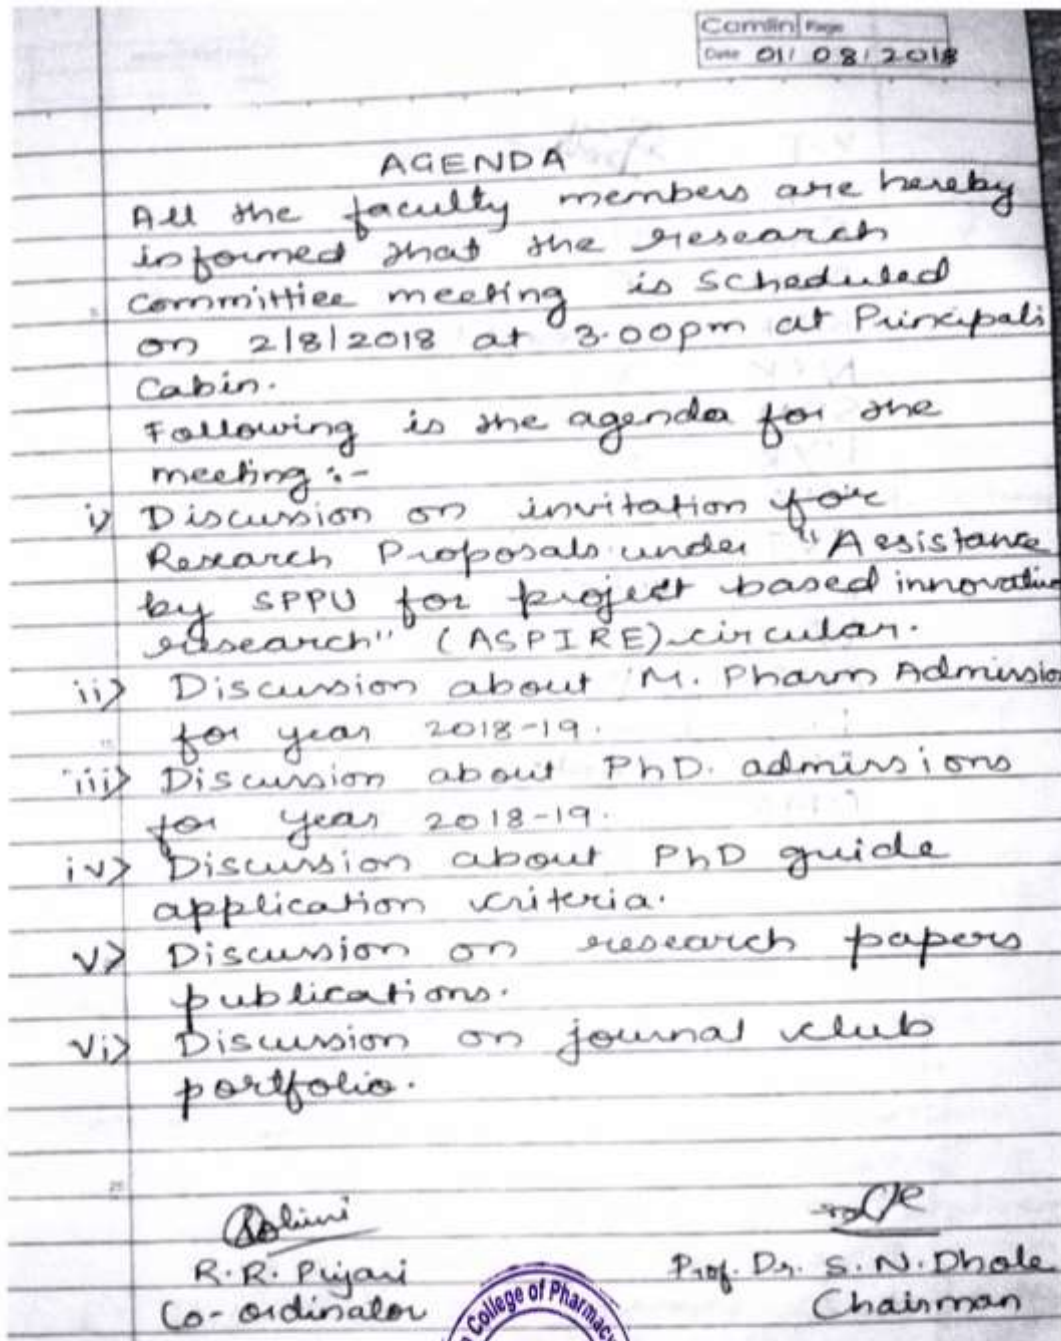 Camlin Page
Date 01/08/2018
AGENDA
All the faculty members are hereby
informed that the research
committiee meeting is scheduled
on 2/8/2018 at 3.00pm at Principals
Cabin.
Following is the agenda for the
meeting :-
i) Discussion on invitation for
Research Proposals under "Assistance
by SPPU for project based innovative
research" (ASPIRE) circular.
ii) Discussion about M. Pharm Admission
for year 2018-19.
iii) Discussion about PhD. admissions
for year 2018-19.
iv) Discussion about PhD guide
application criteria.
v) Discussion on research papers
publications.
vi) Discussion on journal club
portfolio.
R.R. Pujari
Prof. Dr. S.N. Dhole
Co-ordinator
Chairman
College of Pharmacy